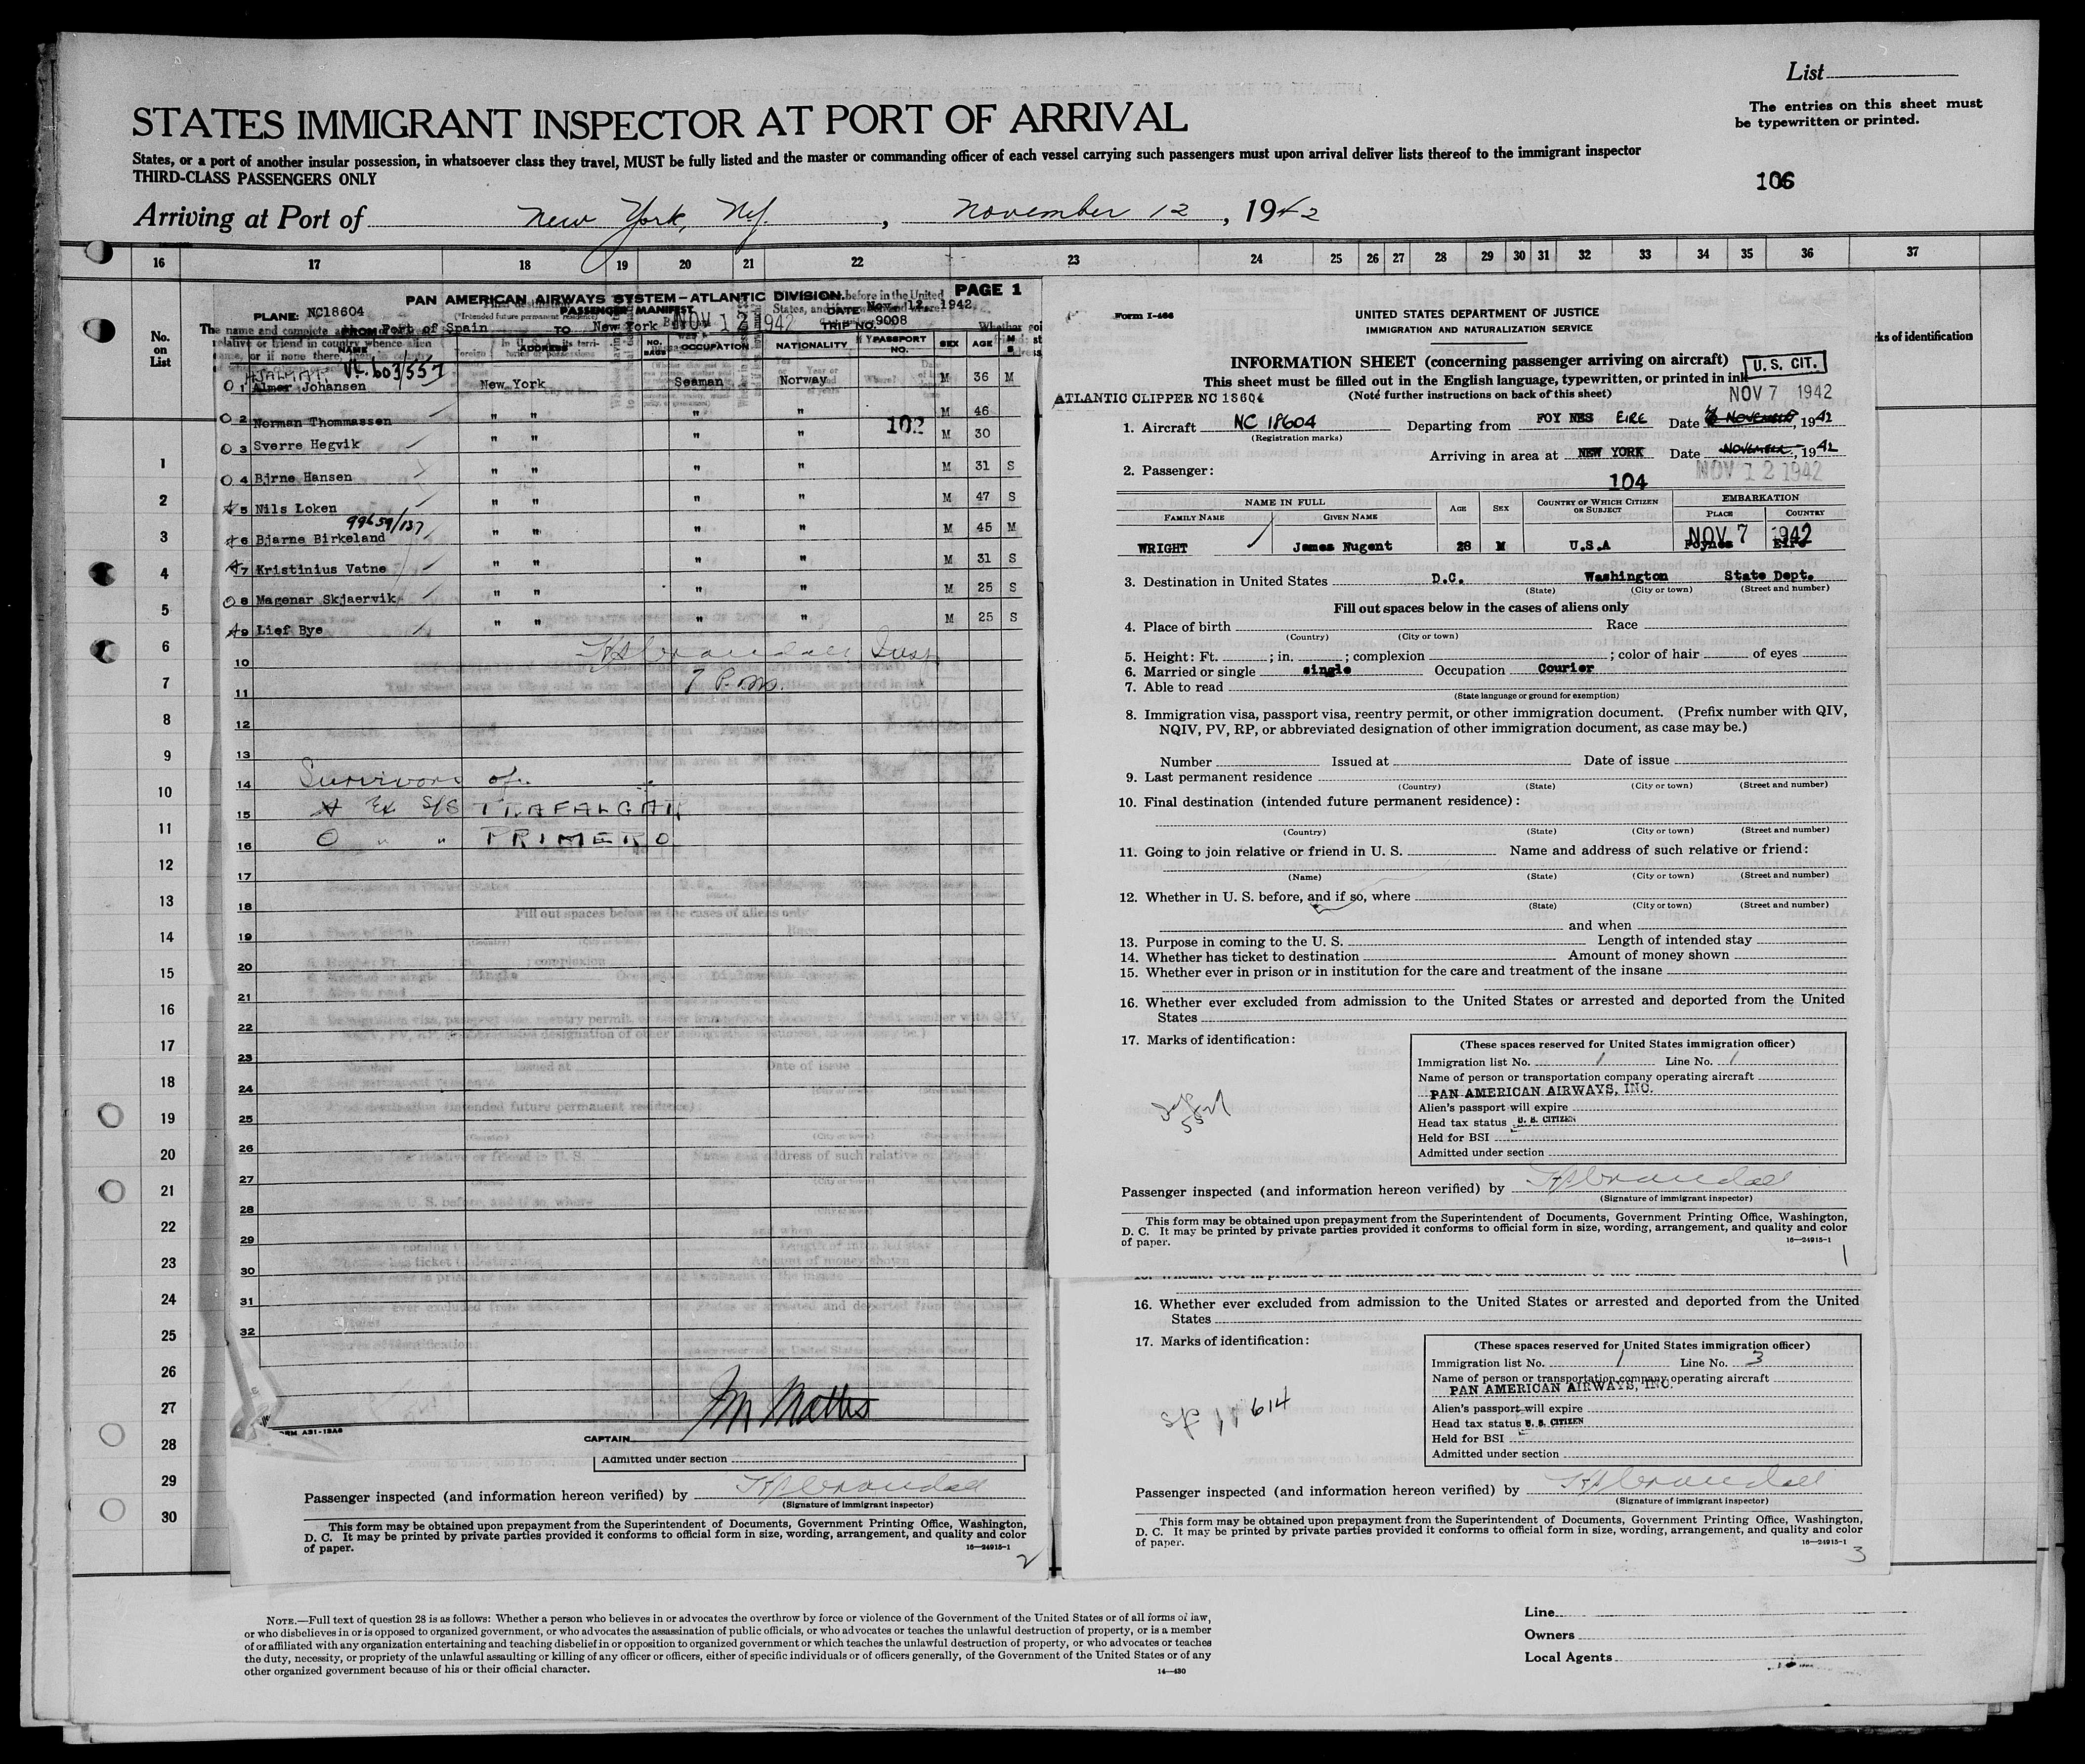 List
The entries on this sheet must
be typewritten or printed.
STATES IMMIGRANT INSPECTOR AT PORT OF ARRIVAL
States, or a port of another insular possession, in whatsoever class they travel, MUST be fully listed and the master or commanding officer of each vessel carrying such passengers must upon arrival deliver lists thereof to the immigrant inspector
THIRD-CLASS PASSENGERS ONLY
106
Arriving at Port of New York, NY, November 12, 1942
16 17 18 19 20 21 22 23 24 25 26 27 28 29 30 31 32 33 34 35 36 37
No. on List
1
2
3
4
5
6
7
8
9
10
11
12
13
14
15
16
17
18
19
20
21
22
23
24
25
26
27
28
29
30
PAN AMERICAN AIRWAYS SYSTEM—ATLANTIC DIVISION PAGE 1
PLANE: NC18604 PASSENGER MANIFEST DATE Nov. 12 1942
FROM Port of Spain TO New York NOV 12 1942 TRIP NO. 9008
NAME ADDRESS NO. BAGS OCCUPATION NATIONALITY PASSPORT NO. SEX AGE M S
HJALMAR VC. 603/557
O 1 Almer Johansen New York Seaman Norway M 36 M
O 2 Norman Thommassen " " " " M 46
102
O 3 Sverre Hegvik " " " " M 30
O 4 Bjrne Hansen " " " " M 31 S
5 Nils Loken " " " " M 47 S
99659/137
6 Bjarne Birkeland " " " " M 45 M
7 Kristinius Vatne " " " " M 31 S
O 8 Magenar Skjaervik " " " " M 25 S
9 Lief Bye " " " " M 25 S
10
7 P.m.
11
12
13
14 Survivors of
15 Ex S/S TRAFALGAR
16 O " " PRIMERO
17
18
19
20
21
22
23
24
25
26
27
28
29
30
31
32
CAPTAIN
Admitted under section
Passenger inspected (and information hereon verified) by
(Signature of immigrant inspector)
This form may be obtained upon prepayment from the Superintendent of Documents, Government Printing Office, Washington,
D. C. It may be printed by private parties provided it conforms to official form in size, wording, arrangement, and quality and color
of paper. 16—24915-1
2
Form I-466
UNITED STATES DEPARTMENT OF JUSTICE
IMMIGRATION AND NATURALIZATION SERVICE
INFORMATION SHEET (concerning passenger arriving on aircraft)
U. S. CIT.
This sheet must be filled out in the English language, typewritten, or printed in ink
(Note further instructions on back of this sheet) NOV 7 1942
ATLANTIC CLIPPER NC 18604
1. Aircraft NC 18604 Departing from FOYNES EIRE Date NOVEMBER, 1942
(Registration marks)
Arriving in area at NEW YORK Date NOVEMBER, 1942
2. Passenger: NOV 12 1942
104
NAME IN FULL AGE SEX COUNTRY OF WHICH CITIZEN OR SUBJECT EMBARKATION
FAMILY NAME GIVEN NAME PLACE COUNTRY
NOV 7 1942
WRIGHT James Nugent 28 M U.S.A Foynes Eire
3. Destination in United States D.C. Washington State Dept.
(State) (City or town) (Street and number)
Fill out spaces below in the cases of aliens only
4. Place of birth Race
(Country) (City or town)
5. Height: Ft. ; in. ; complexion ; color of hair of eyes
6. Married or single single Occupation Courier
7. Able to read
(State language or ground for exemption)
8. Immigration visa, passport visa, reentry permit, or other immigration document. (Prefix number with QIV,
NQIV, PV, RP, or abbreviated designation of other immigration document, as case may be.)
Number Issued at Date of issue
9. Last permanent residence
(Country) (State) (City or town) (Street and number)
10. Final destination (intended future permanent residence):
(Country) (State) (City or town) (Street and number)
11. Going to join relative or friend in U. S. Name and address of such relative or friend:
(Name) (State) (City or town) (Street and number)
12. Whether in U. S. before, and if so, where
(State) (City or town) (Street and number)
and when
13. Purpose in coming to the U. S. Length of intended stay
14. Whether has ticket to destination Amount of money shown
15. Whether ever in prison or in institution for the care and treatment of the insane
16. Whether ever excluded from admission to the United States or arrested and deported from the United
States
17. Marks of identification:
(These spaces reserved for United States immigration officer)
Immigration list No. 1 Line No. 1
Name of person or transportation company operating aircraft
PAN AMERICAN AIRWAYS, INC.
Alien's passport will expire
Head tax status U. S. CITIZEN
Held for BSI
Admitted under section
Passenger inspected (and information hereon verified) by
(Signature of immigrant inspector)
This form may be obtained upon prepayment from the Superintendent of Documents, Government Printing Office, Washington,
D. C. It may be printed by private parties provided it conforms to official form in size, wording, arrangement, and quality and color
of paper. 16—24915-1
1
16. Whether ever excluded from admission to the United States or arrested and deported from the United
States
17. Marks of identification:
(These spaces reserved for United States immigration officer)
Immigration list No. 1 Line No. 3
Name of person or transportation company operating aircraft
PAN AMERICAN AIRWAYS, INC.
Alien's passport will expire
Head tax status U. S. CITIZEN
Held for BSI
Admitted under section
614
Passenger inspected (and information hereon verified) by
(Signature of immigrant inspector)
This form may be obtained upon prepayment from the Superintendent of Documents, Government Printing Office, Washington,
D. C. It may be printed by private parties provided it conforms to official form in size, wording, arrangement, and quality and color
of paper. 16—24915-1
3
ks of identification
NOTE.—Full text of question 28 is as follows: Whether a person who believes in or advocates the overthrow by force or violence of the Government of the United States or of all forms of law,
or who disbelieves in or is opposed to organized government, or who advocates the assassination of public officials, or who advocates or teaches the unlawful destruction of property, or is a member
of or affiliated with any organization entertaining and teaching disbelief in or opposition to organized government or which teaches the unlawful destruction of property, or who advocates or teaches
the duty, necessity, or propriety of the unlawful assaulting or killing of any officer or officers, either of specific individuals or of officers generally, of the Government of the United States or of any
other organized government because of his or their official character. 14—430
Line
Owners
Local Agents